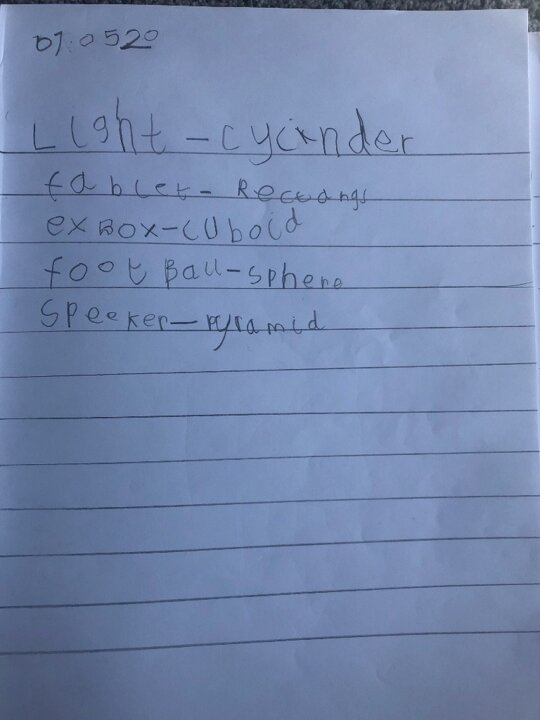 07.0520
Light - cycinder
tablet - Rectangs
exBox - cuboid
foot Ball - sphere
Speeker - pyramid